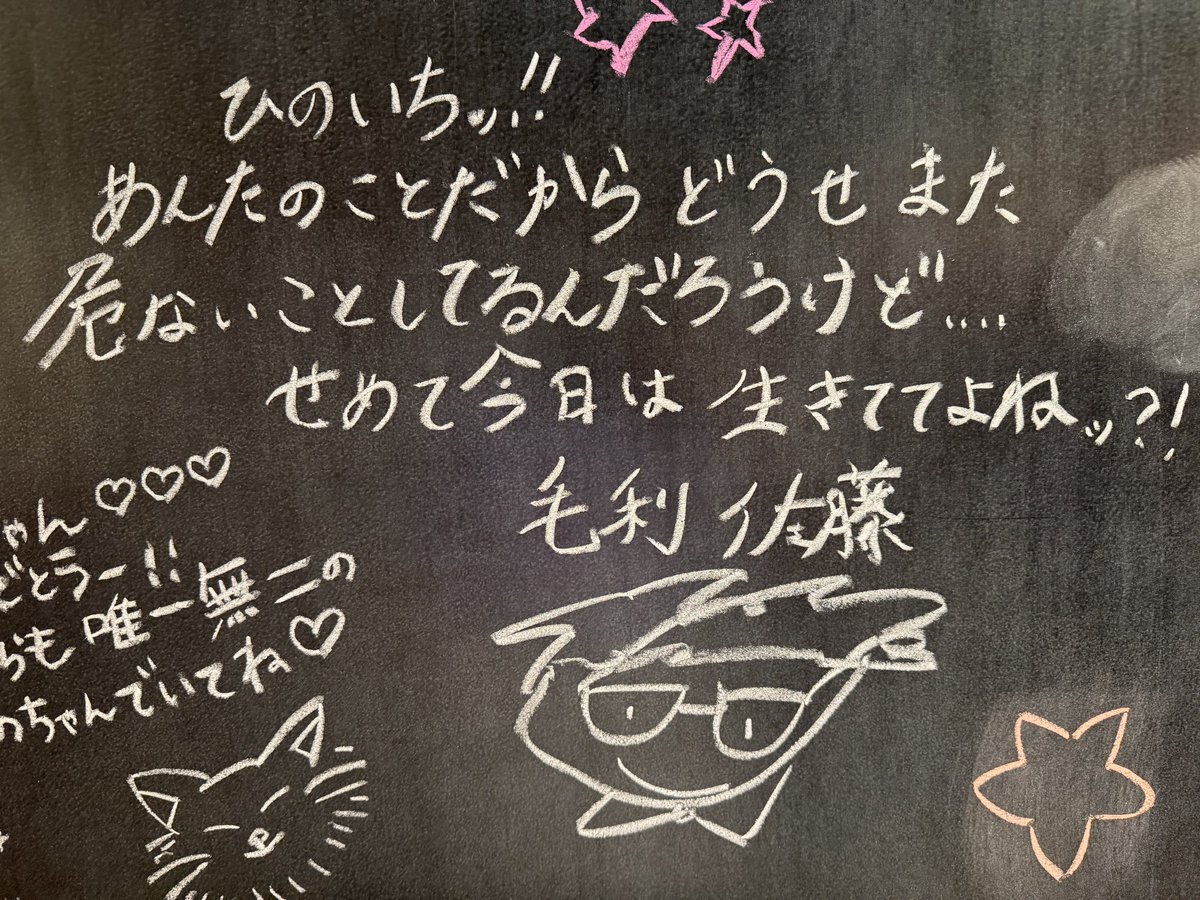 ひのいちッ!!
あんたのことだから どうせ また
危ないことしてるんだろうけど....
せめて今日は 生きててよねッ?!
毛利 佐藤
ゃん♡♡♡
ごとうー!!
らも 唯一無二の
のちゃんでいてね♡